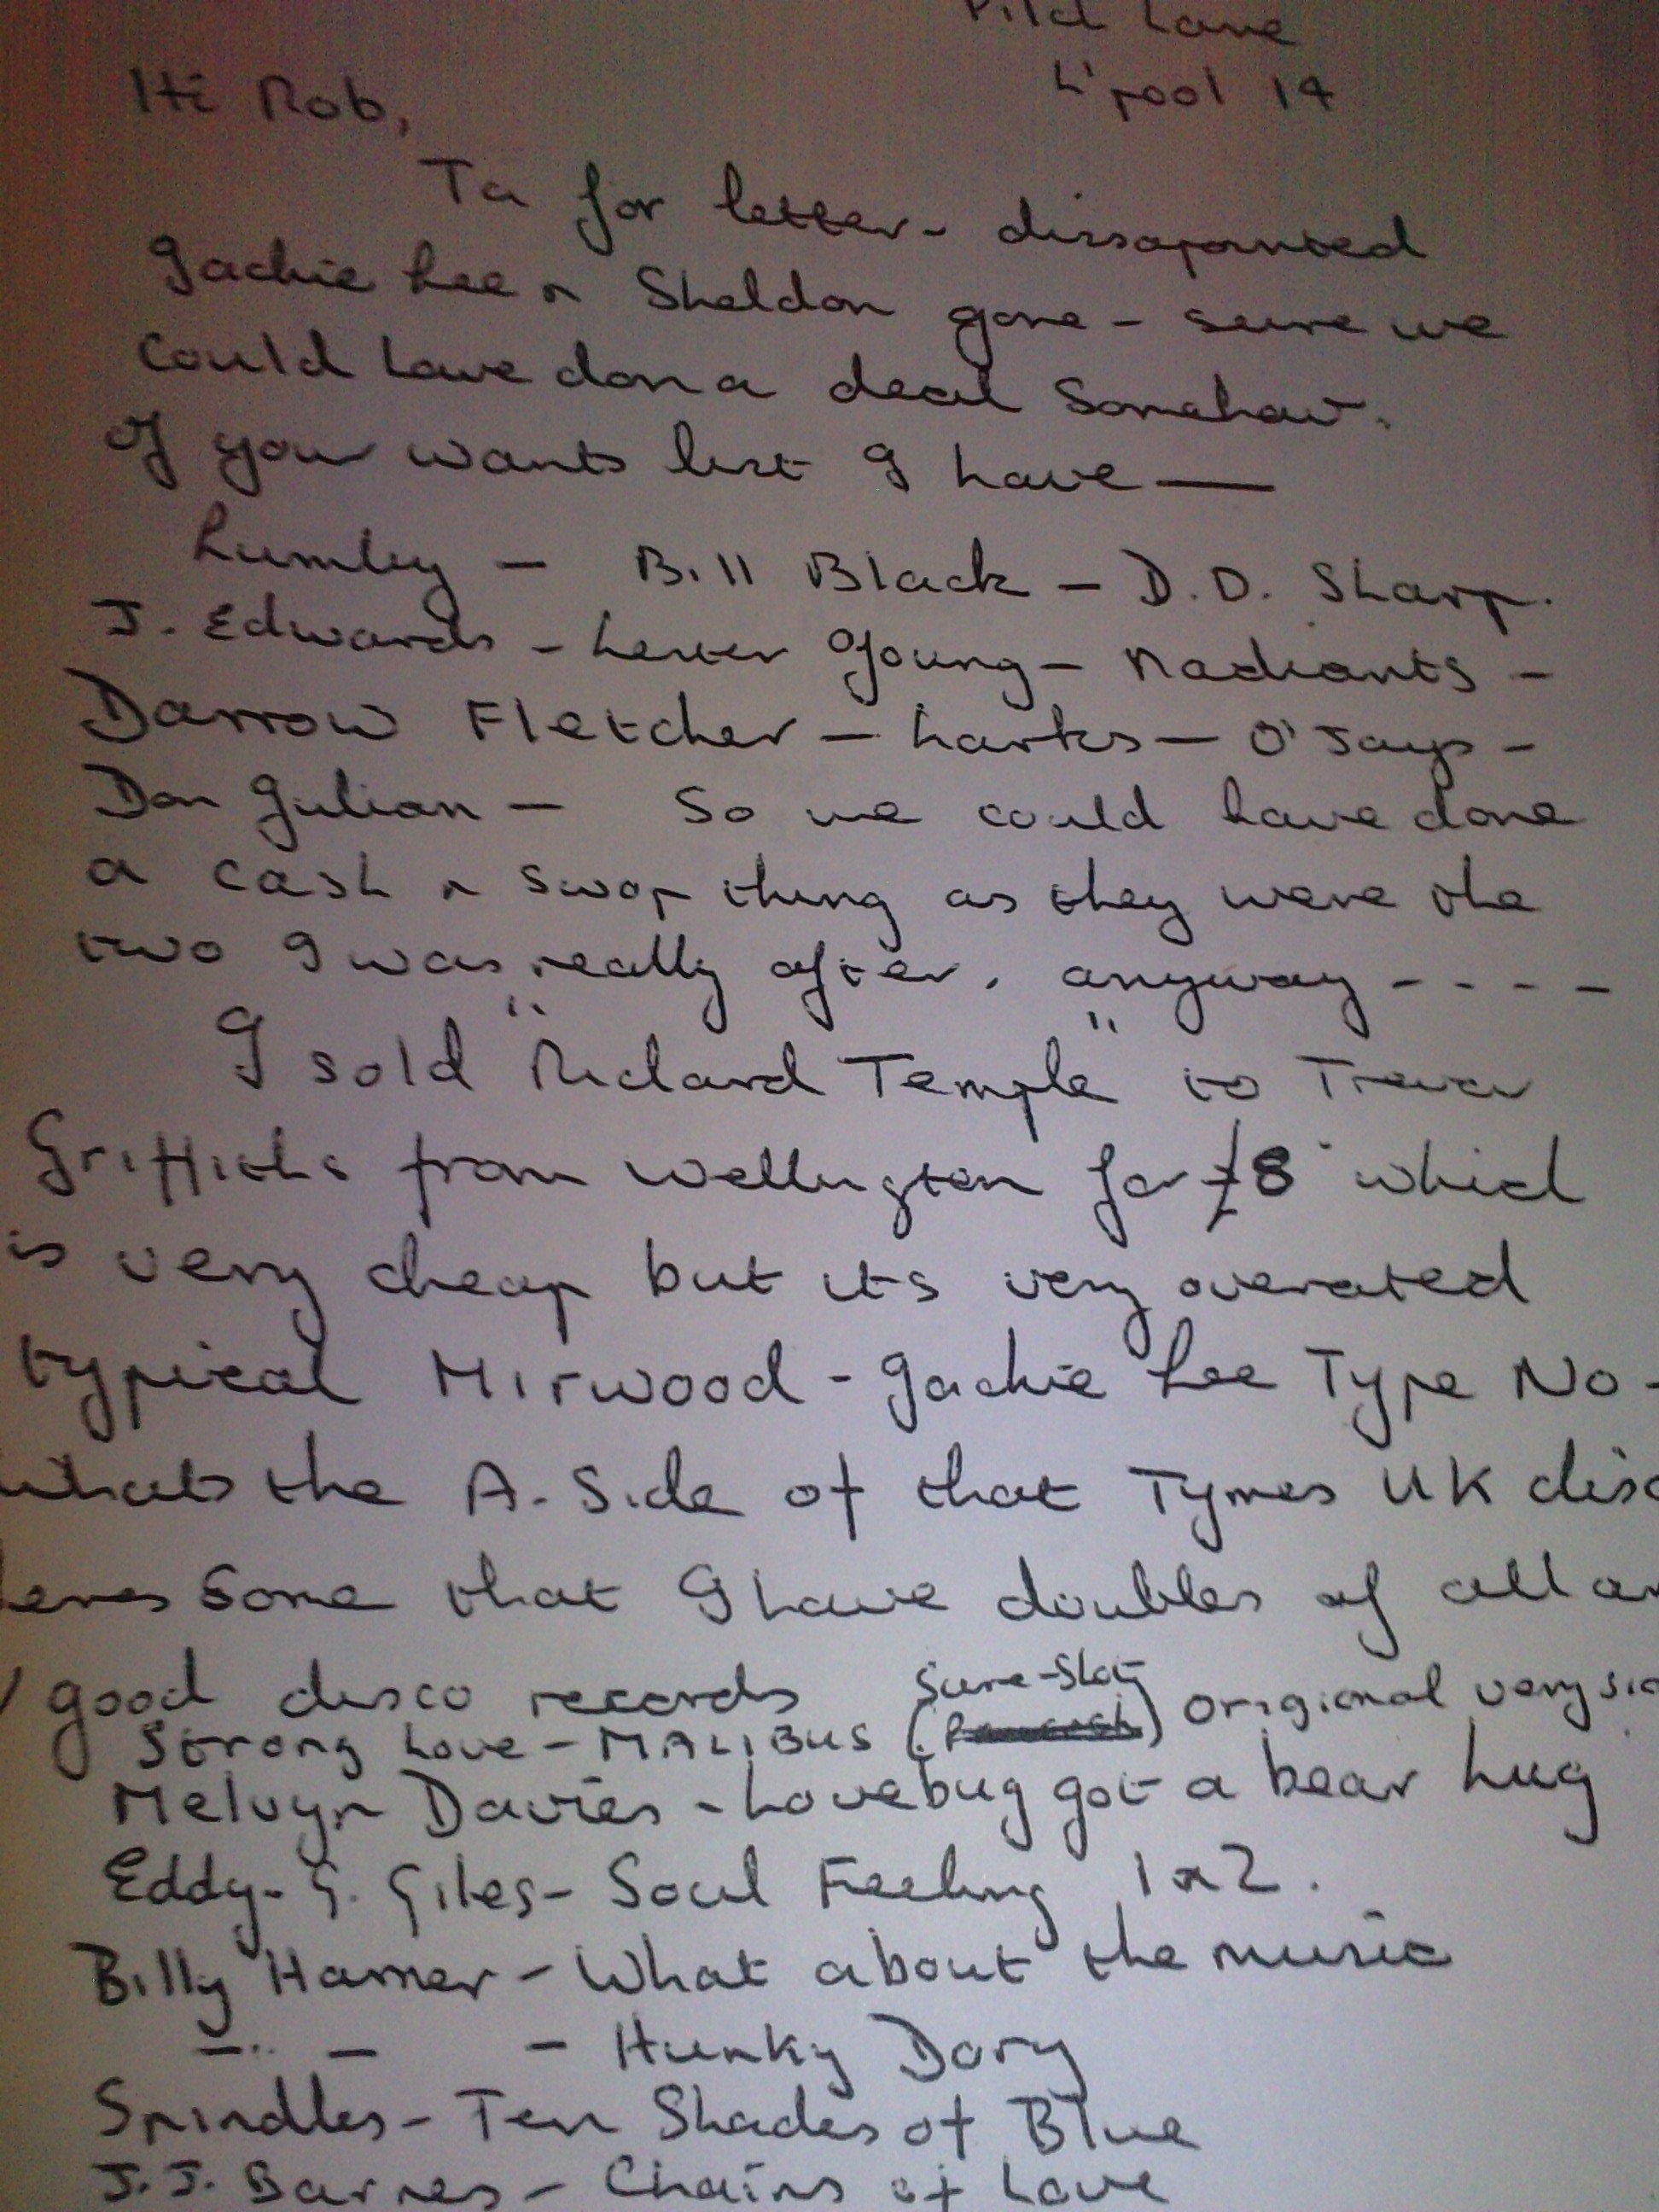 Pilch Lane
L'pool 14
Hi Rob,
Ta for letter - dissapointed
Jackie Lee & Sheldon gone - sure we
could have don a deal somehow.
Of your wants list I have —
Lumley - Bill Black - D.D. Sharp.
J. Edwards - Lester Young - Radiants -
Darrow Fletcher - Larks - O'Jays -
Don Julian - So we could have done
a cash & swop thing as they were the
two I was really after. anyway - - - -
I sold "Richard Temple" to Trevor
Griffiths from Wellington for £8 which
is very cheap but its very overated
typical Mirwood - Jackie Lee Type No -
whats the A. Side of that Tymes UK disc
heres some that I have doubles of all are
good disco records
Strong Love - MALIBUS (Sure-Shot) origional very
Melvyn Davies - Lovebug got a bear hug
Eddy - G. Giles - Soul Feeling 1 & 2.
Billy Hamer - What about the music
— " — - Hunky Dory
Spindles - Ten Shades of Blue
J.J. Barnes - Chains of Love